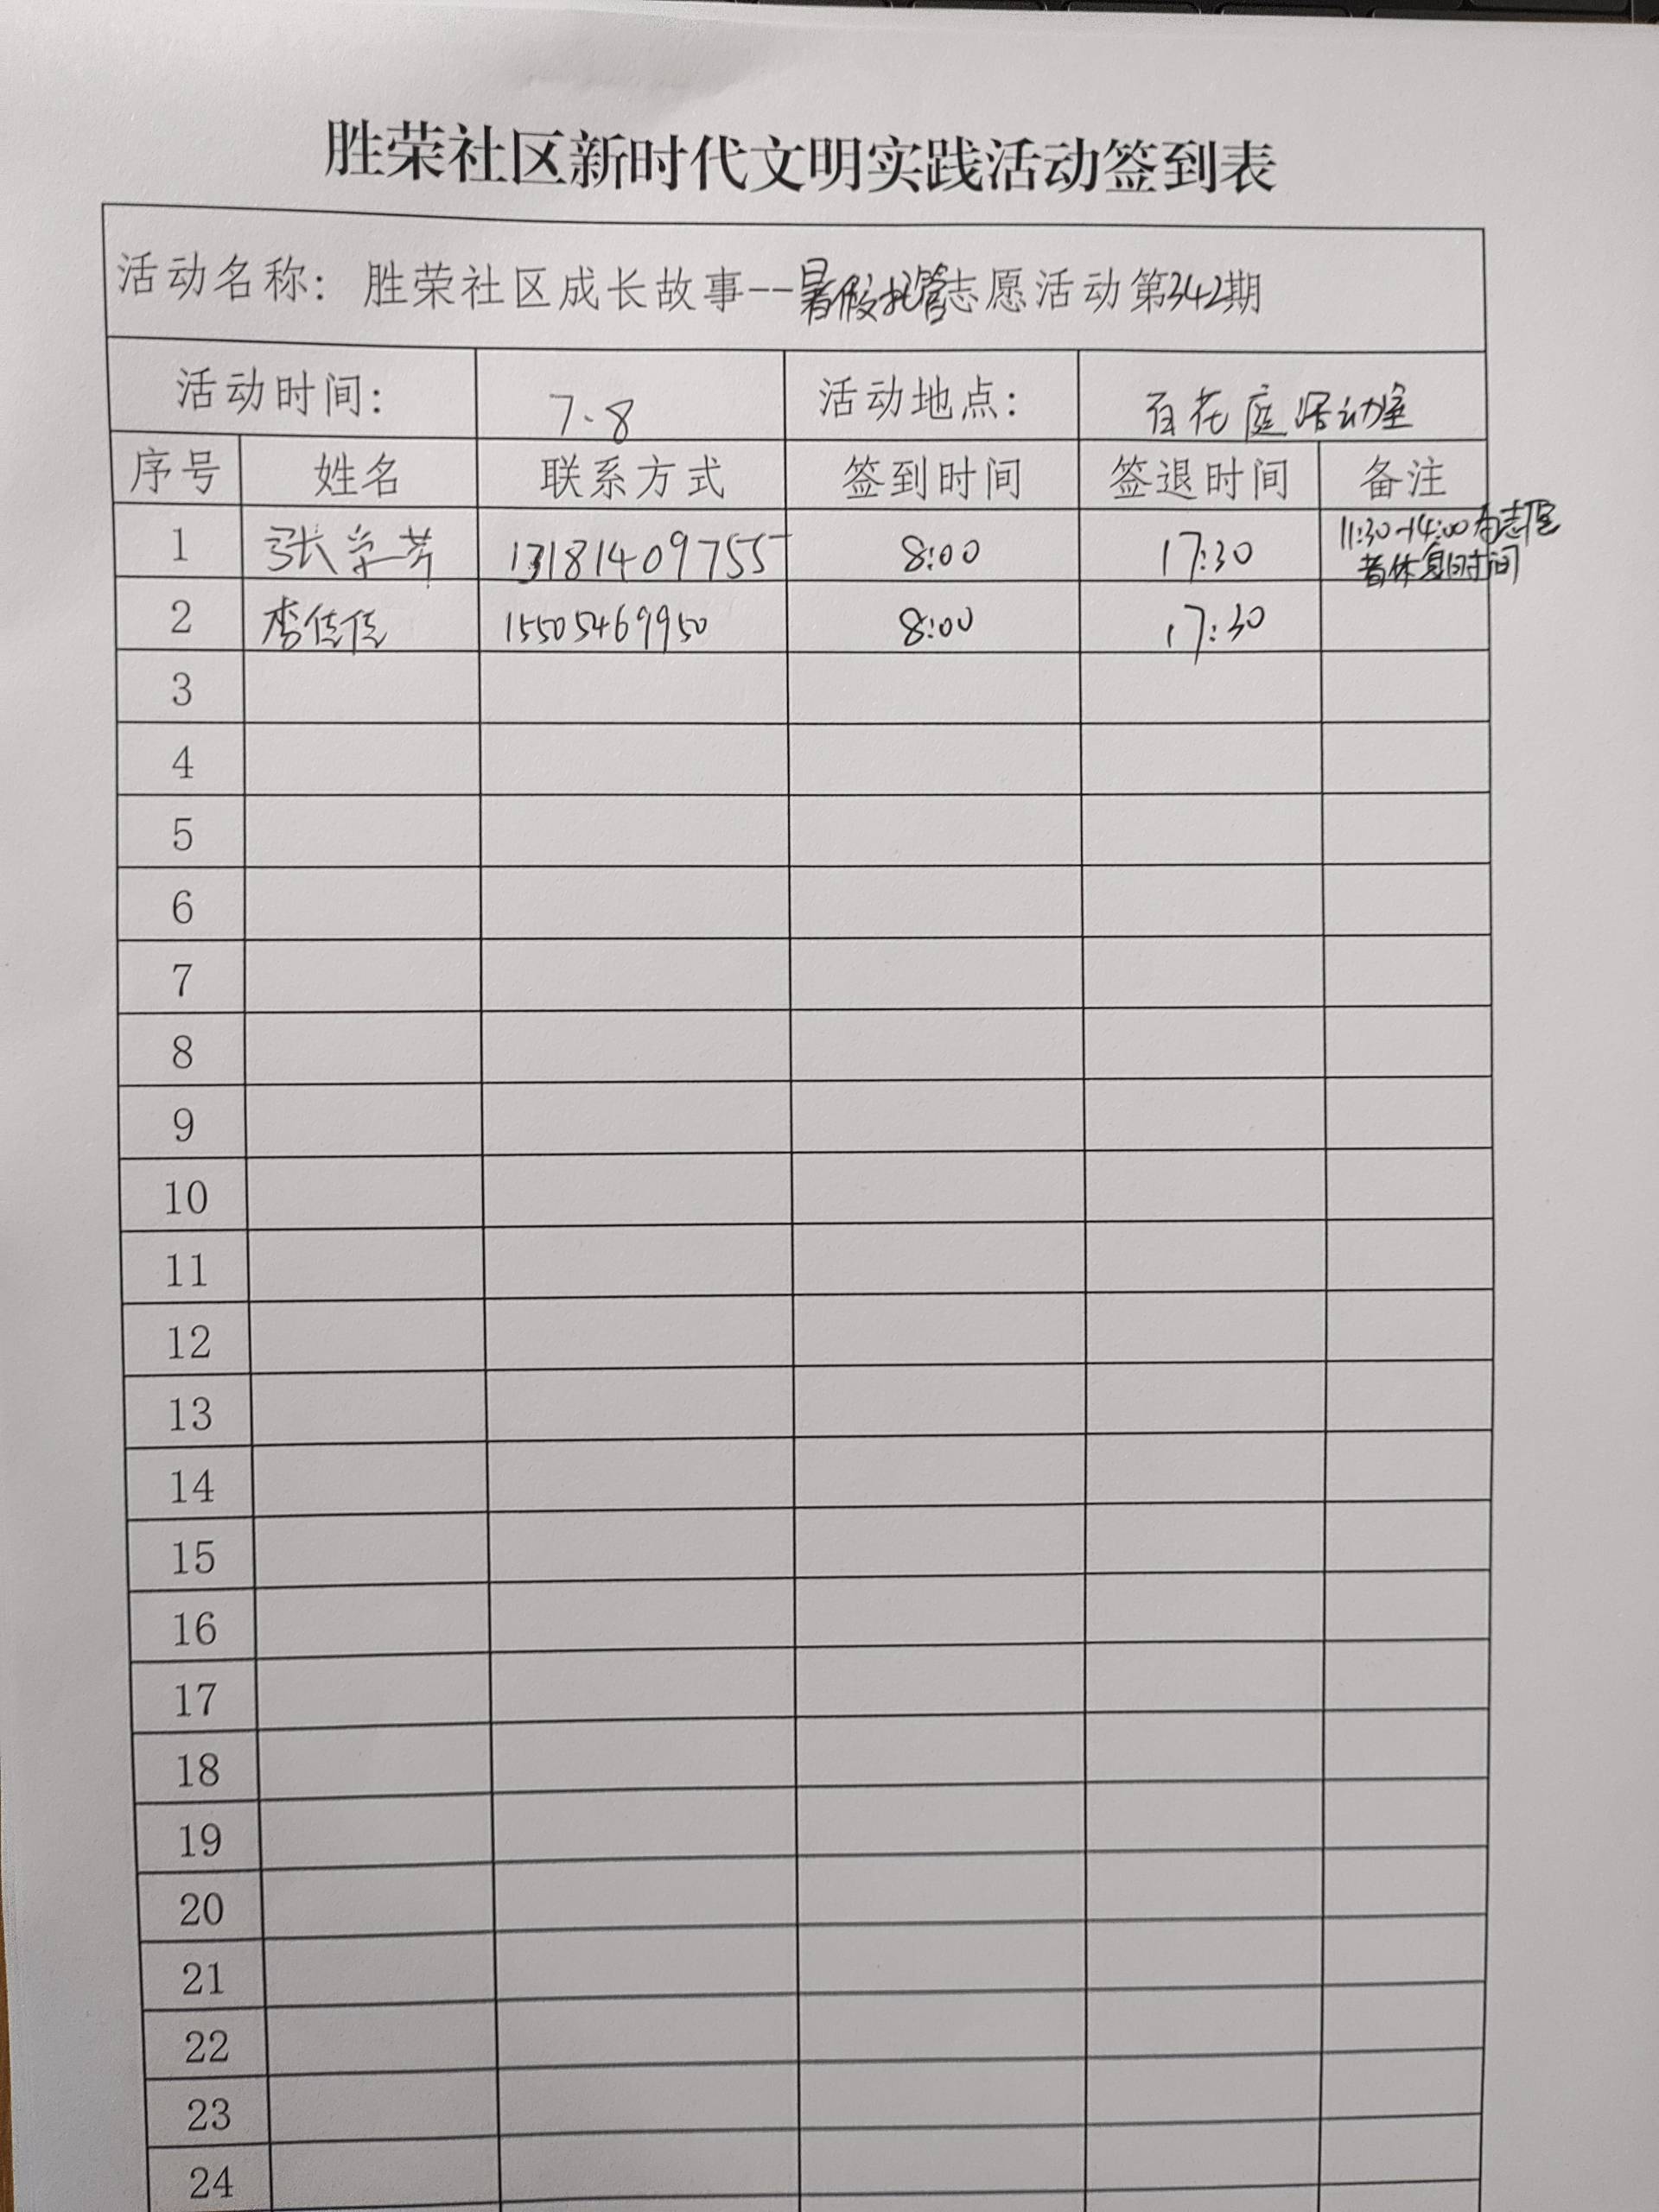 胜荣社区新时代文明实践活动签到表
活动名称：胜荣社区成长故事--暑假托管志愿活动第342期
活动时间： 7.8 活动地点： 百花庭活动室
序号 姓名 联系方式 签到时间 签退时间 备注
1 张学芳 13181409755 8:00 17:30 11:30-14:00为志愿
者休息时间
2 李佳佳 15505469950 8:00 17:30
3
4
5
6
7
8
9
10
11
12
13
14
15
16
17
18
19
20
21
22
23
24